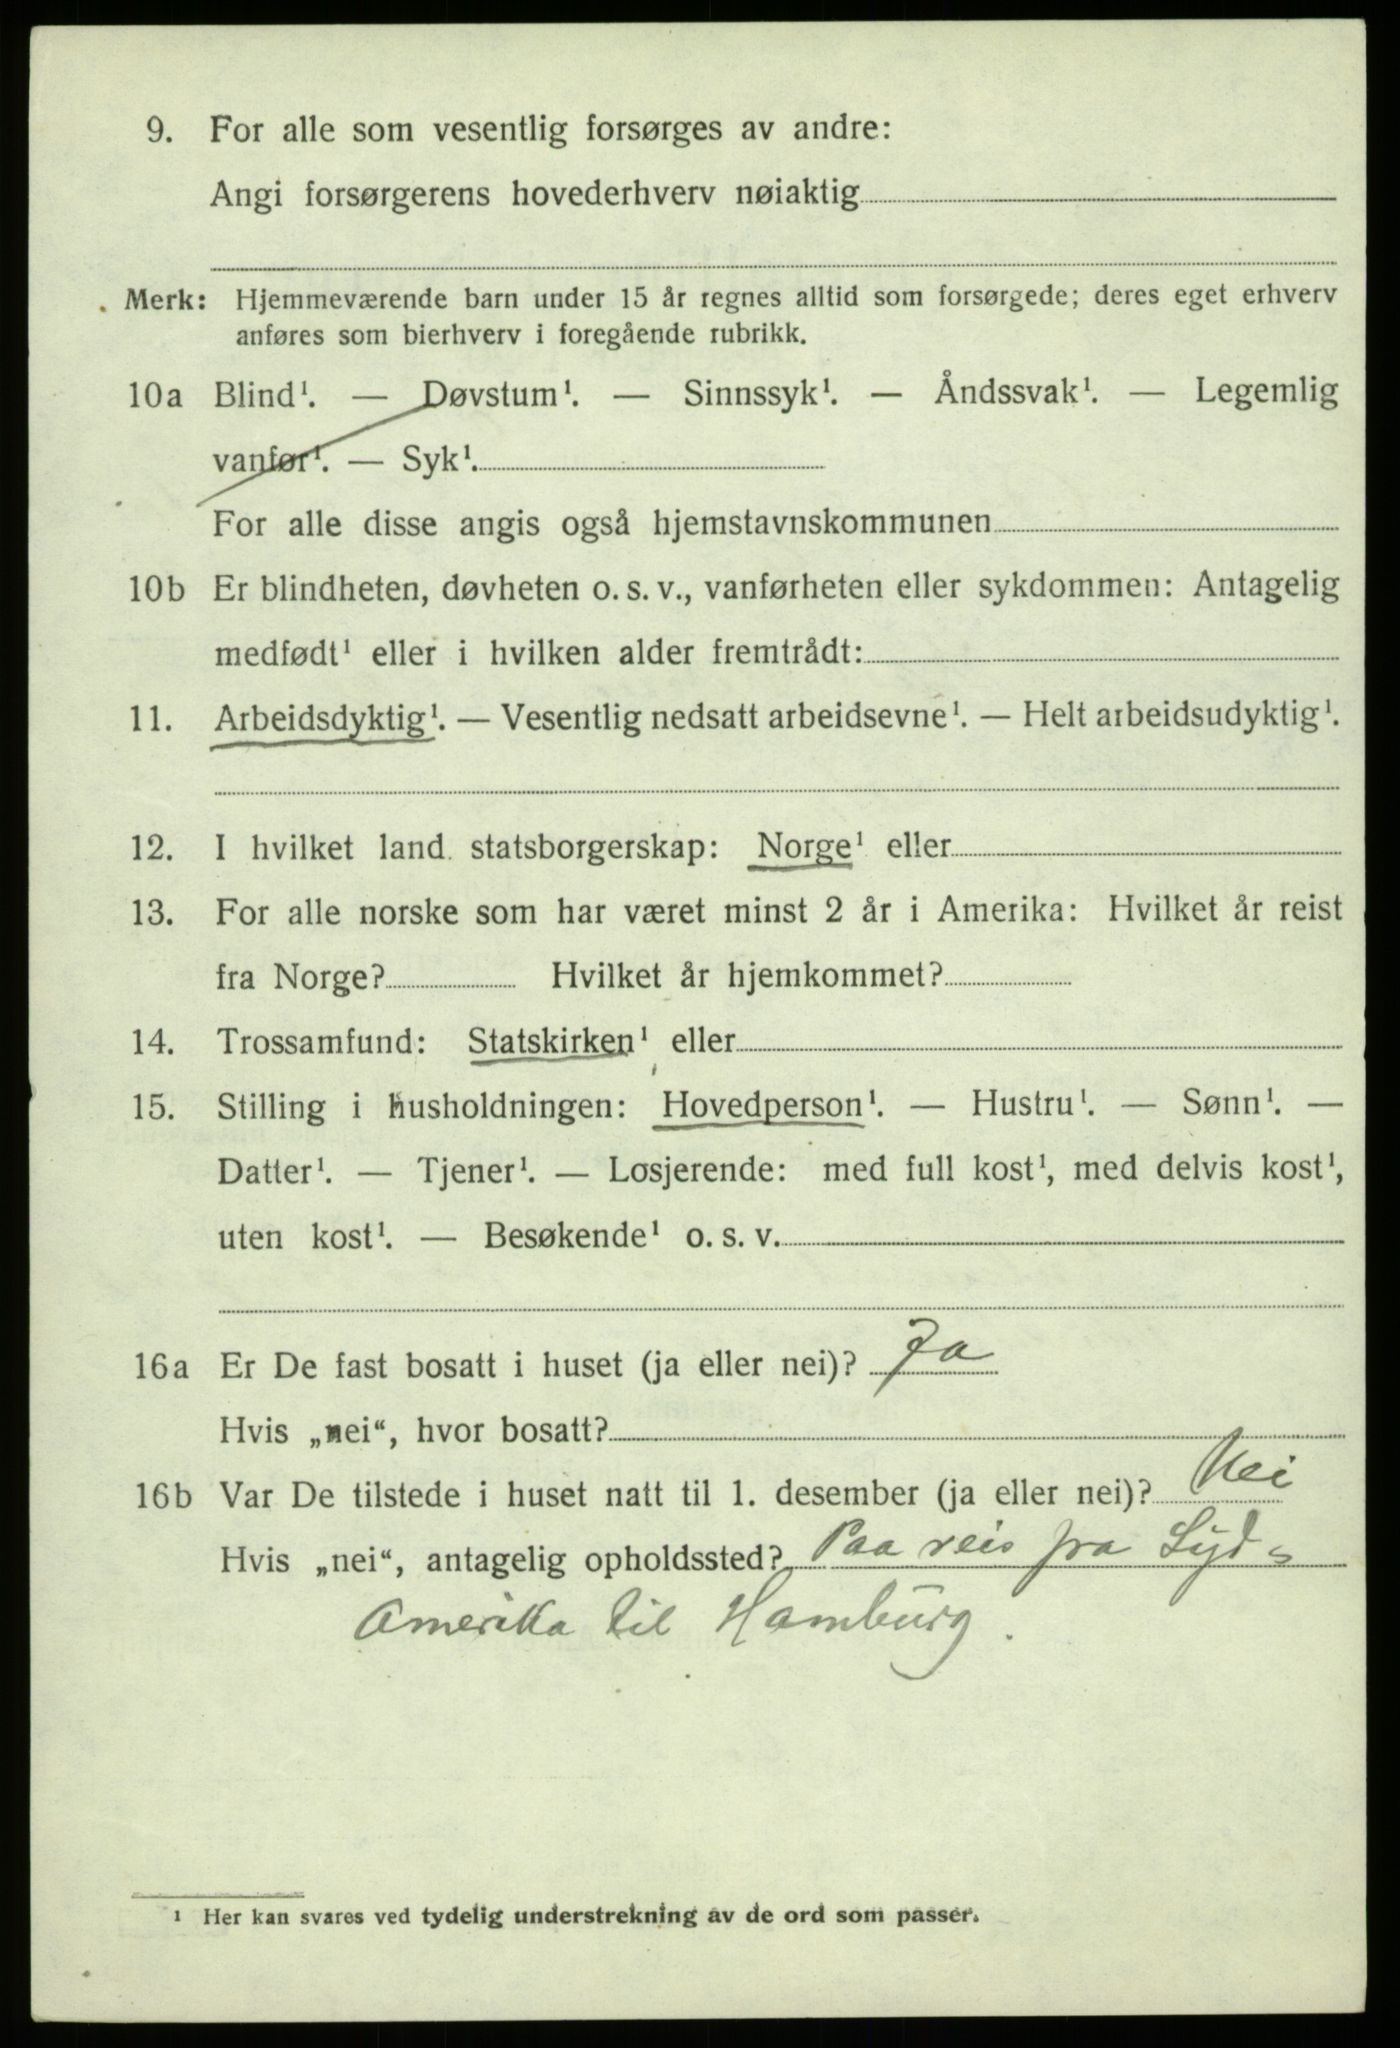 9. For alle som vesentlig forsørges av andre:
Angi forsørgerens hovederhverv nøiaktig
Merk: Hjemmeværende barn under 15 år regnes alltid som forsørgede; deres eget erhverv
anføres som bierhverv i foregående rubrikk.
10a Blind¹. — Døvstum¹. — Sinnssyk¹. — Åndssvak¹. — Legemlig
vanfør¹. — Syk¹.
For alle disse angis også hjemstavnskommunen
10b Er blindheten, døvheten o. s. v., vanførheten eller sykdommen: Antagelig
medfødt¹ eller i hvilken alder fremtrådt:
11. Arbeidsdyktig¹. — Vesentlig nedsatt arbeidsevne¹. — Helt arbeidsudyktig¹.
12. I hvilket land statsborgerskap: Norge¹ eller
13. For alle norske som har været minst 2 år i Amerika: Hvilket år reist
fra Norge? Hvilket år hjemkommet?
14. Trossamfund: Statskirken¹ eller
15. Stilling i husholdningen: Hovedperson¹. — Hustru¹. — Sønn¹. —
Datter¹. — Tjener¹. — Losjerende: med full kost¹, med delvis kost¹,
uten kost¹. — Besøkende¹ o. s. v.
16a Er De fast bosatt i huset (ja eller nei)? Ja
Hvis „nei“, hvor bosatt?
16b Var De tilstede i huset natt til 1. desember (ja eller nei)? Nei
Hvis „nei“, antagelig opholdssted? Paa reis fra Syd-
Amerika til Hamburg.
¹ Her kan svares ved tydelig understrekning av de ord som passer.